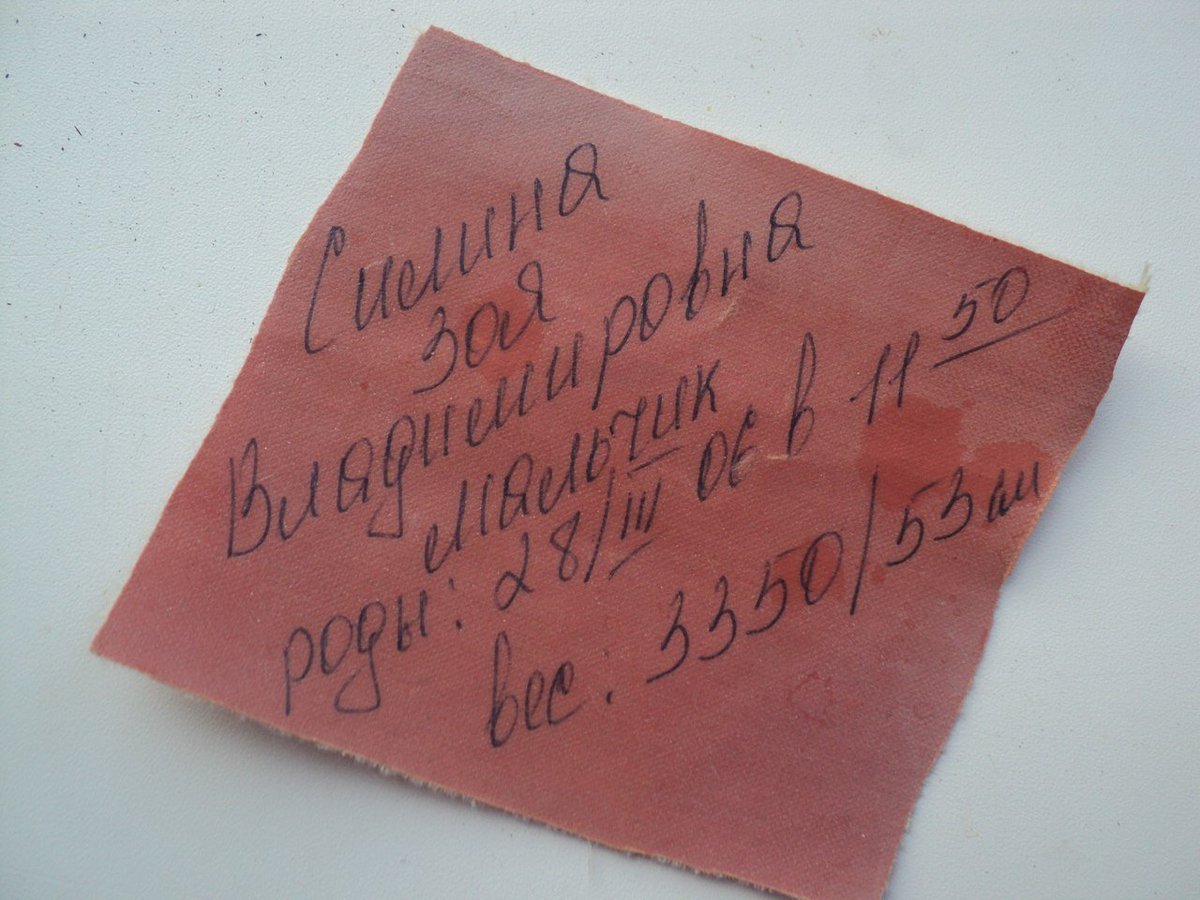 Силина
Зоя
Владимировна
мальчик
роды: 28/III в 11 50
вес: 3350/53 см